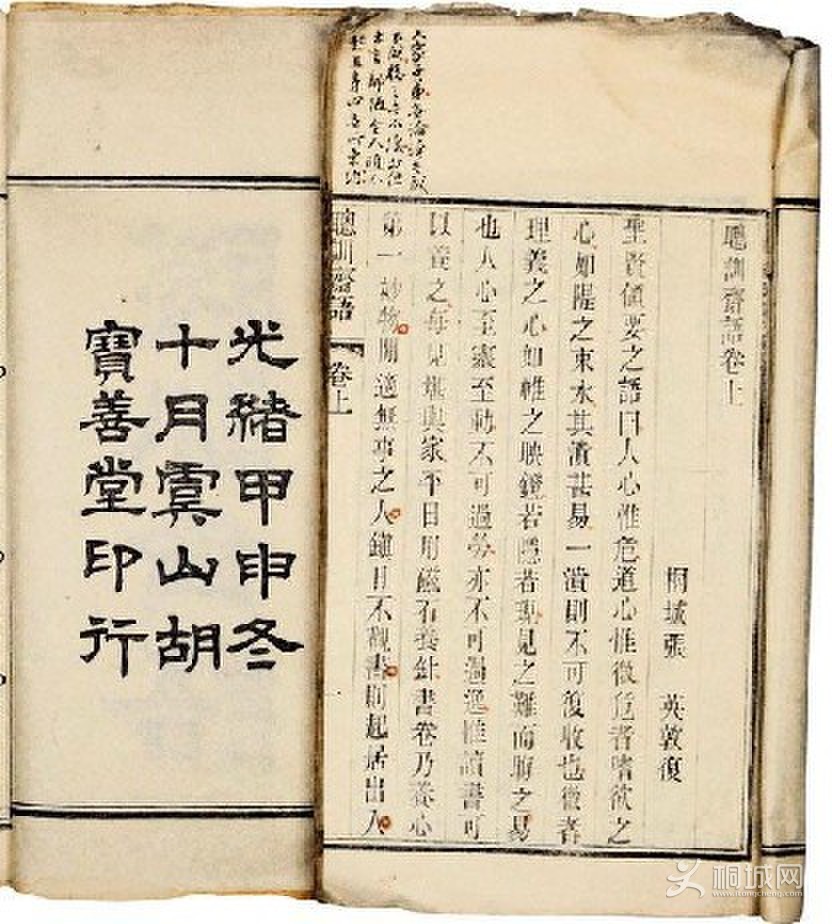 聰訓齋語卷上
桐城張 英敦復
聖賢領要之語曰人心惟危道心惟微危者嗜欲之
心如隄之束水其潰甚易一潰則不可復收也微者
理義之心如帷之映鏡若隱若現見之難而晦之易
也人心至靈至動不可過勞亦不可過逸惟讀書可
以養之每見堪輿家平日用磁石養針書卷乃養心
第一妙物閒適無事之人鎮日不觀書則起居出入
聰訓齋語 卷上
光緒甲申冬
十月虞山胡
寶善堂印行
桐城网